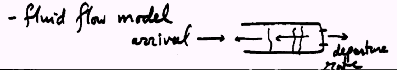 - fluid flow model
arrival
departure
rate